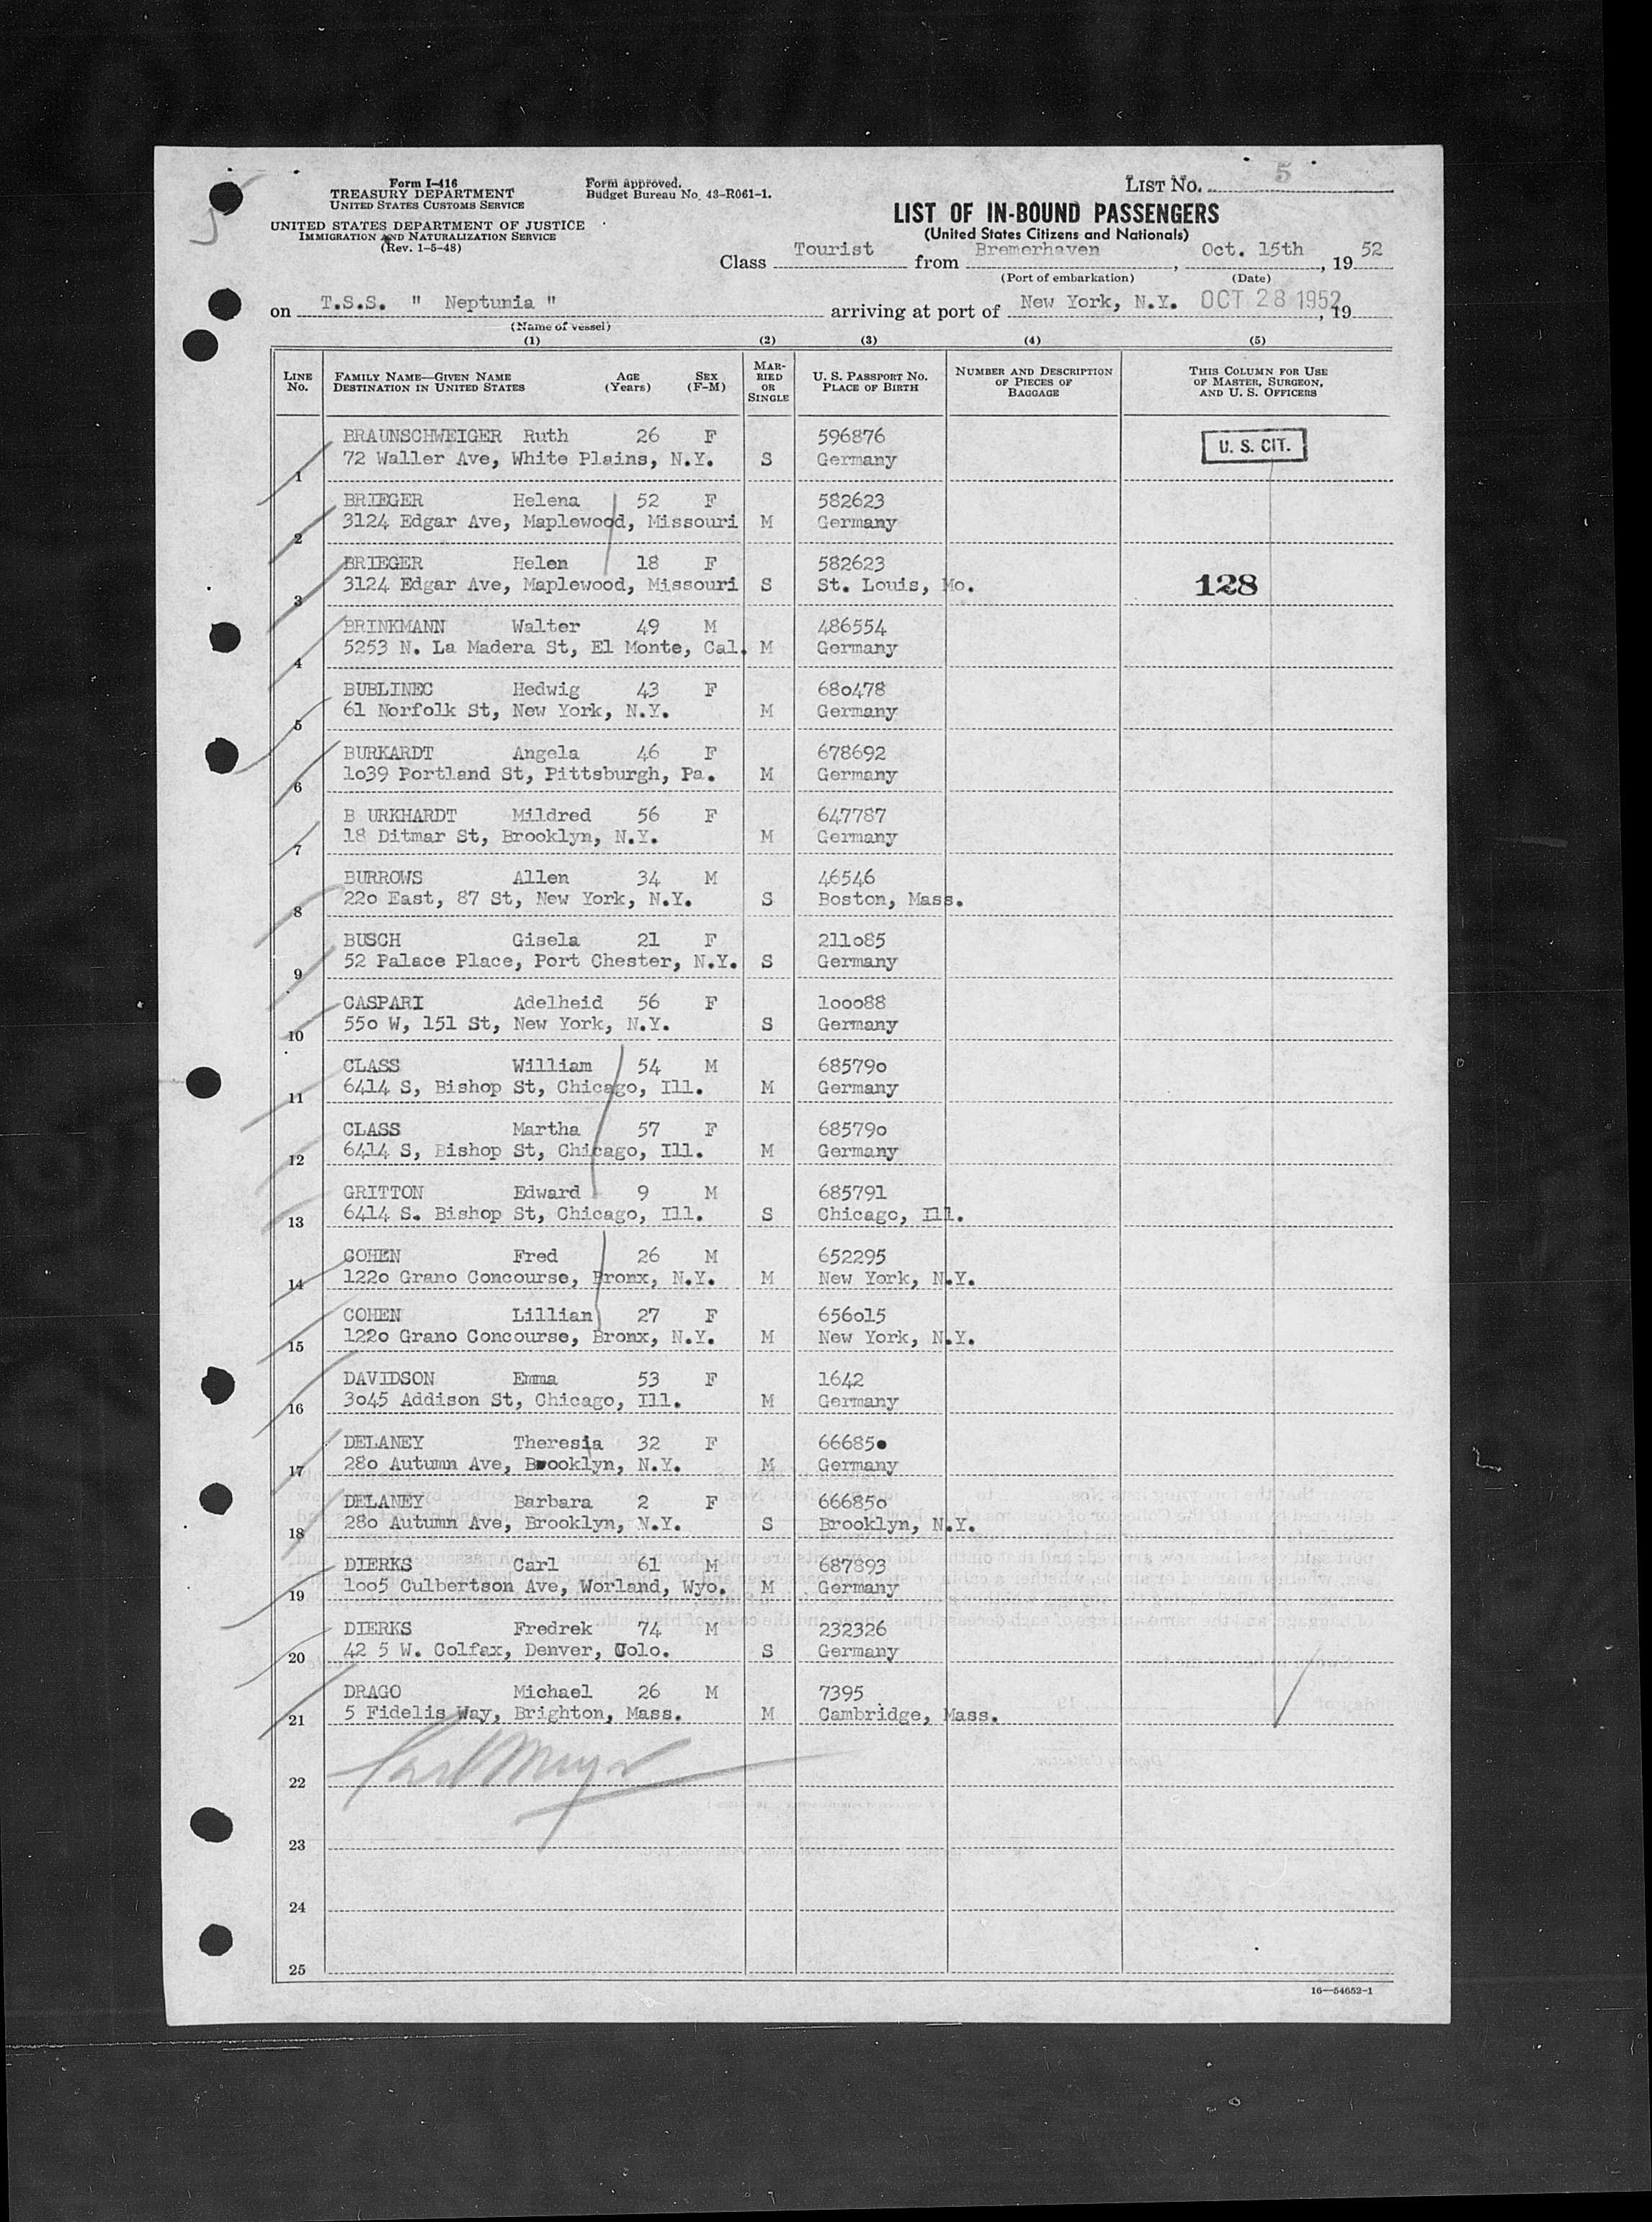 Form I-416
TREASURY DEPARTMENT
UNITED STATES CUSTOMS SERVICE
UNITED STATES DEPARTMENT OF JUSTICE
IMMIGRATION AND NATURALIZATION SERVICE
(Rev. 1-5-48)
Form approved.
Budget Bureau No. 43-R061-1.
LIST No. 5
LIST OF IN-BOUND PASSENGERS
(United States Citizens and Nationals)
Class Tourist from Bremerhaven, Oct. 15th, 19 52
(Port of embarkation) (Date)
on T.S.S. " Neptunia " arriving at port of New York, N.Y. OCT 28 1952, 19
(Name of vessel)
(1) (2) (3) (4) (5)
LINE No. FAMILY NAME—GIVEN NAME DESTINATION IN UNITED STATES AGE (Years) SEX (F-M) MARRIED OR SINGLE U. S. PASSPORT No. PLACE OF BIRTH NUMBER AND DESCRIPTION OF PIECES OF BAGGAGE THIS COLUMN FOR USE OF MASTER, SURGEON, AND U. S. OFFICERS
BRAUNSCHWEIGER Ruth 26 F 596876 U. S. CIT.
1 72 Waller Ave, White Plains, N.Y. S Germany
BRIEGER Helena 52 F 582623
2 3124 Edgar Ave, Maplewood, Missouri M Germany
BRIEGER Helen 18 F 582623
3 3124 Edgar Ave, Maplewood, Missouri S St. Louis, Mo. 128
BRINKMANN Walter 49 M 486554
4 5253 N. La Madera St, El Monte, Cal. M Germany
BUBLINEC Hedwig 43 F 680478
5 61 Norfolk St, New York, N.Y. M Germany
BURKARDT Angela 46 F 678692
6 1039 Portland St, Pittsburgh, Pa. M Germany
B URKHARDT Mildred 56 F 647787
7 18 Ditmar St, Brooklyn, N.Y. M Germany
BURROWS Allen 34 M 46546
8 220 East, 87 St, New York, N.Y. S Boston, Mass.
BUSCH Gisela 21 F 211085
9 52 Palace Place, Port Chester, N.Y. S Germany
CASPARI Adelheid 56 F 100088
10 550 W, 151 St, New York, N.Y. S Germany
CLASS William 54 M 685790
11 6414 S, Bishop St, Chicago, Ill. M Germany
CLASS Martha 57 F 685790
12 6414 S, Bishop St, Chicago, Ill. M Germany
GRITTON Edward 9 M 685791
13 6414 S. Bishop St, Chicago, Ill. S Chicago, Ill.
COHEN Fred 26 M 652295
14 1220 Grano Concourse, Bronx, N.Y. M New York, N.Y.
COHEN Lillian 27 F 656015
15 1220 Grano Concourse, Bronx, N.Y. M New York, N.Y.
DAVIDSON Emma 53 F 1642
16 3045 Addison St, Chicago, Ill. M Germany
DELANEY Theresia 32 F 666850
17 280 Autumn Ave, Brooklyn, N.Y. M Germany
DELANEY Barbara 2 F 666850
18 280 Autumn Ave, Brooklyn, N.Y. S Brooklyn, N.Y.
DIERKS Carl 61 M 687893
19 1005 Culbertson Ave, Worland, Wyo. M Germany
DIERKS Fredrek 74 M 232326
20 42 5 W. Colfax, Denver, Colo. S Germany
DRAGO Michael 26 M 7395
21 5 Fidelis Way, Brighton, Mass. M Cambridge, Mass.
22
23
24
25
16—54652-1